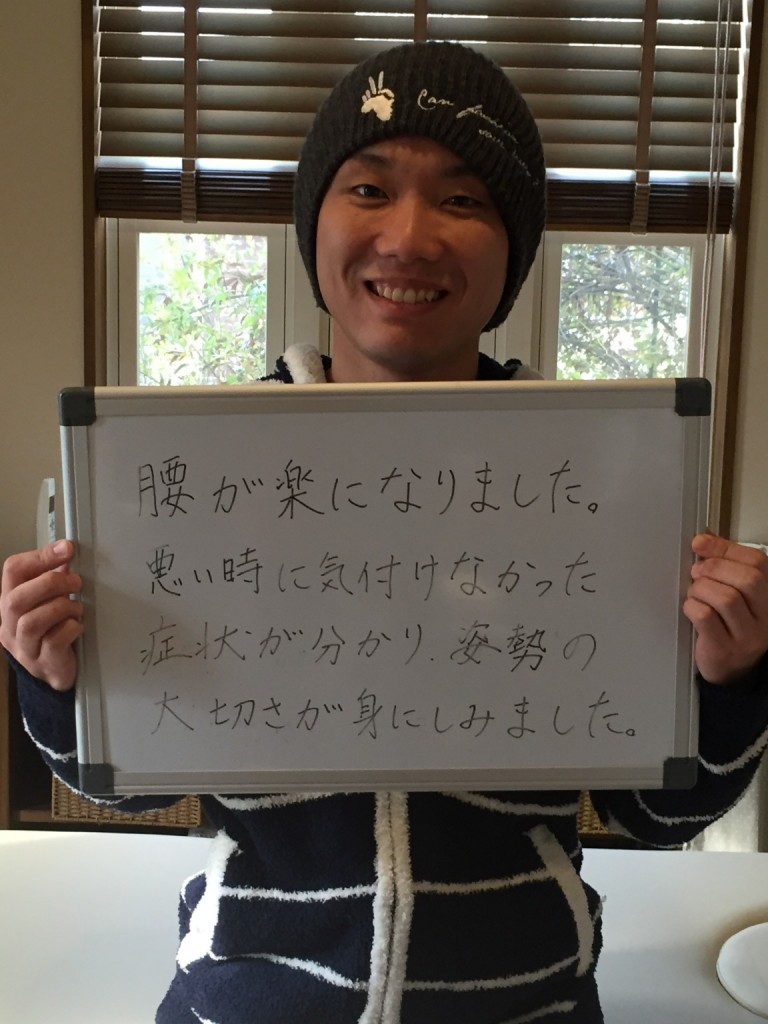 Can
腰が楽になりました。
悪い時に気付けなかった
症状が分かり、姿勢の
大切さが身にしみました。